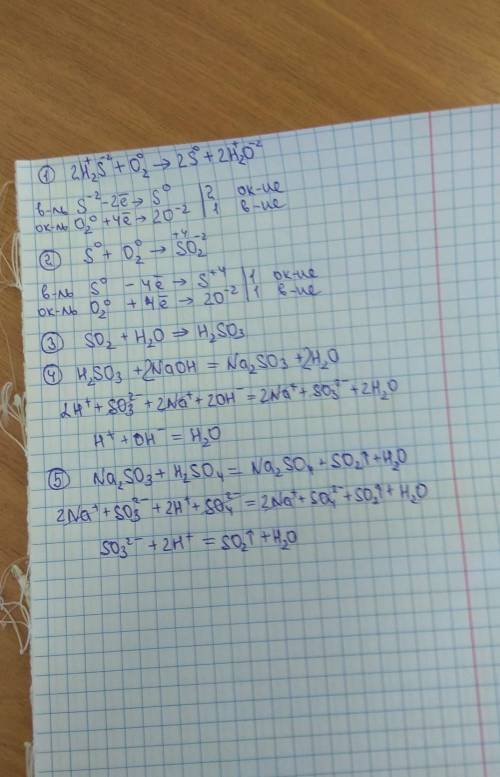 ① 2H₂⁺S⁻² + O₂⁰ → 2S⁰ + 2H₂⁺O⁻²
в-ль S⁻² - 2ē → S⁰ | 2 ок-ие
ок-ль O₂⁰ + 4ē → 2O⁻² | 1 в-ие
② S⁰ + O₂⁰ → S⁺⁴O₂⁻²
в-ль S⁰ - 4ē → S⁺⁴ | 1 ок-ие
ок-ль O₂⁰ + 4ē → 2O⁻² | 1 в-ие
③ SO₂ + H₂O ⇒ H₂SO₃
④ H₂SO₃ + 2NaOH = Na₂SO₃ + 2H₂O
2H⁺ + SO₃²⁻ + 2Na⁺ + 2OH⁻ = 2Na⁺ + SO₃²⁻ + 2H₂O
H⁺ + OH⁻ = H₂O
⑤ Na₂SO₃ + H₂SO₄ = Na₂SO₄ + SO₂↑ + H₂O
2Na⁺ + SO₃²⁻ + 2H⁺ + SO₄²⁻ = 2Na⁺ + SO₄²⁻ + SO₂↑ + H₂O
SO₃²⁻ + 2H⁺ = SO₂↑ + H₂O